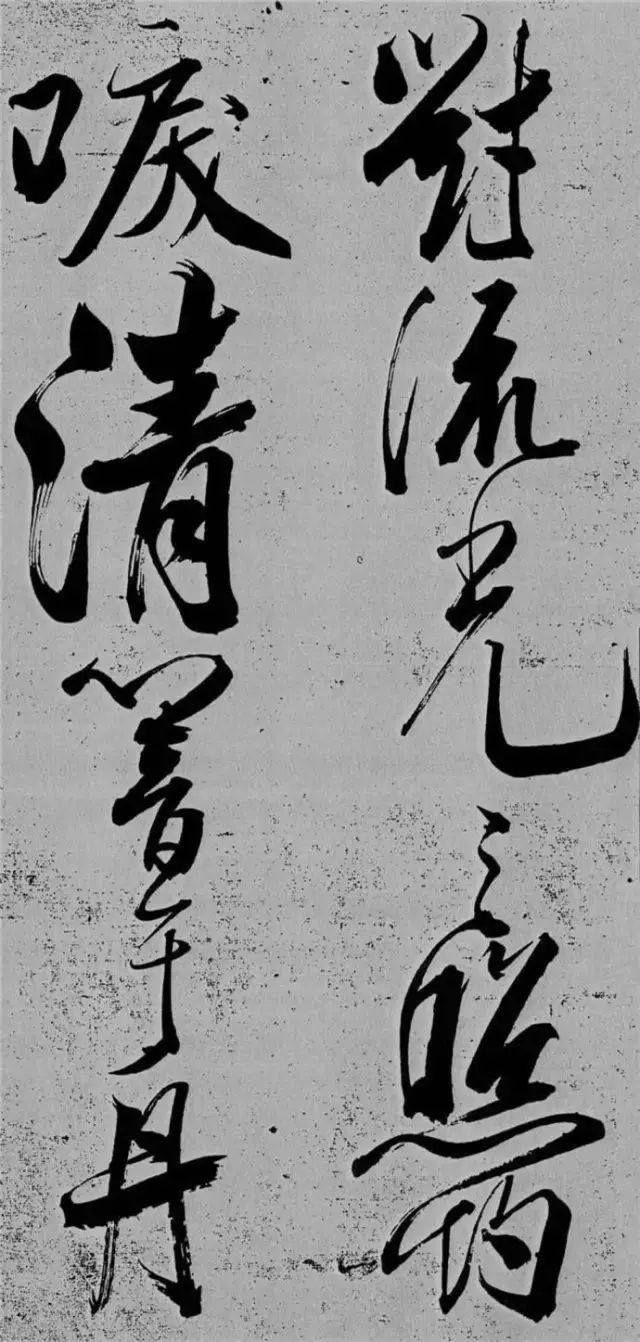 對流光之照灼
唳清響于丹